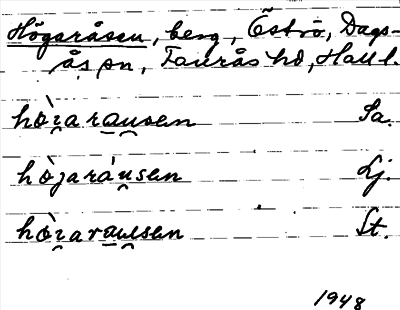 Högaråsen, berg, Öströ, Dags-
ås sn, Faurås hd, Hall.
hò̤ɪarau̯sen Sa.
hòɪaráu̯sen Lj.
hò̤ɪarau̯sen St.
1948